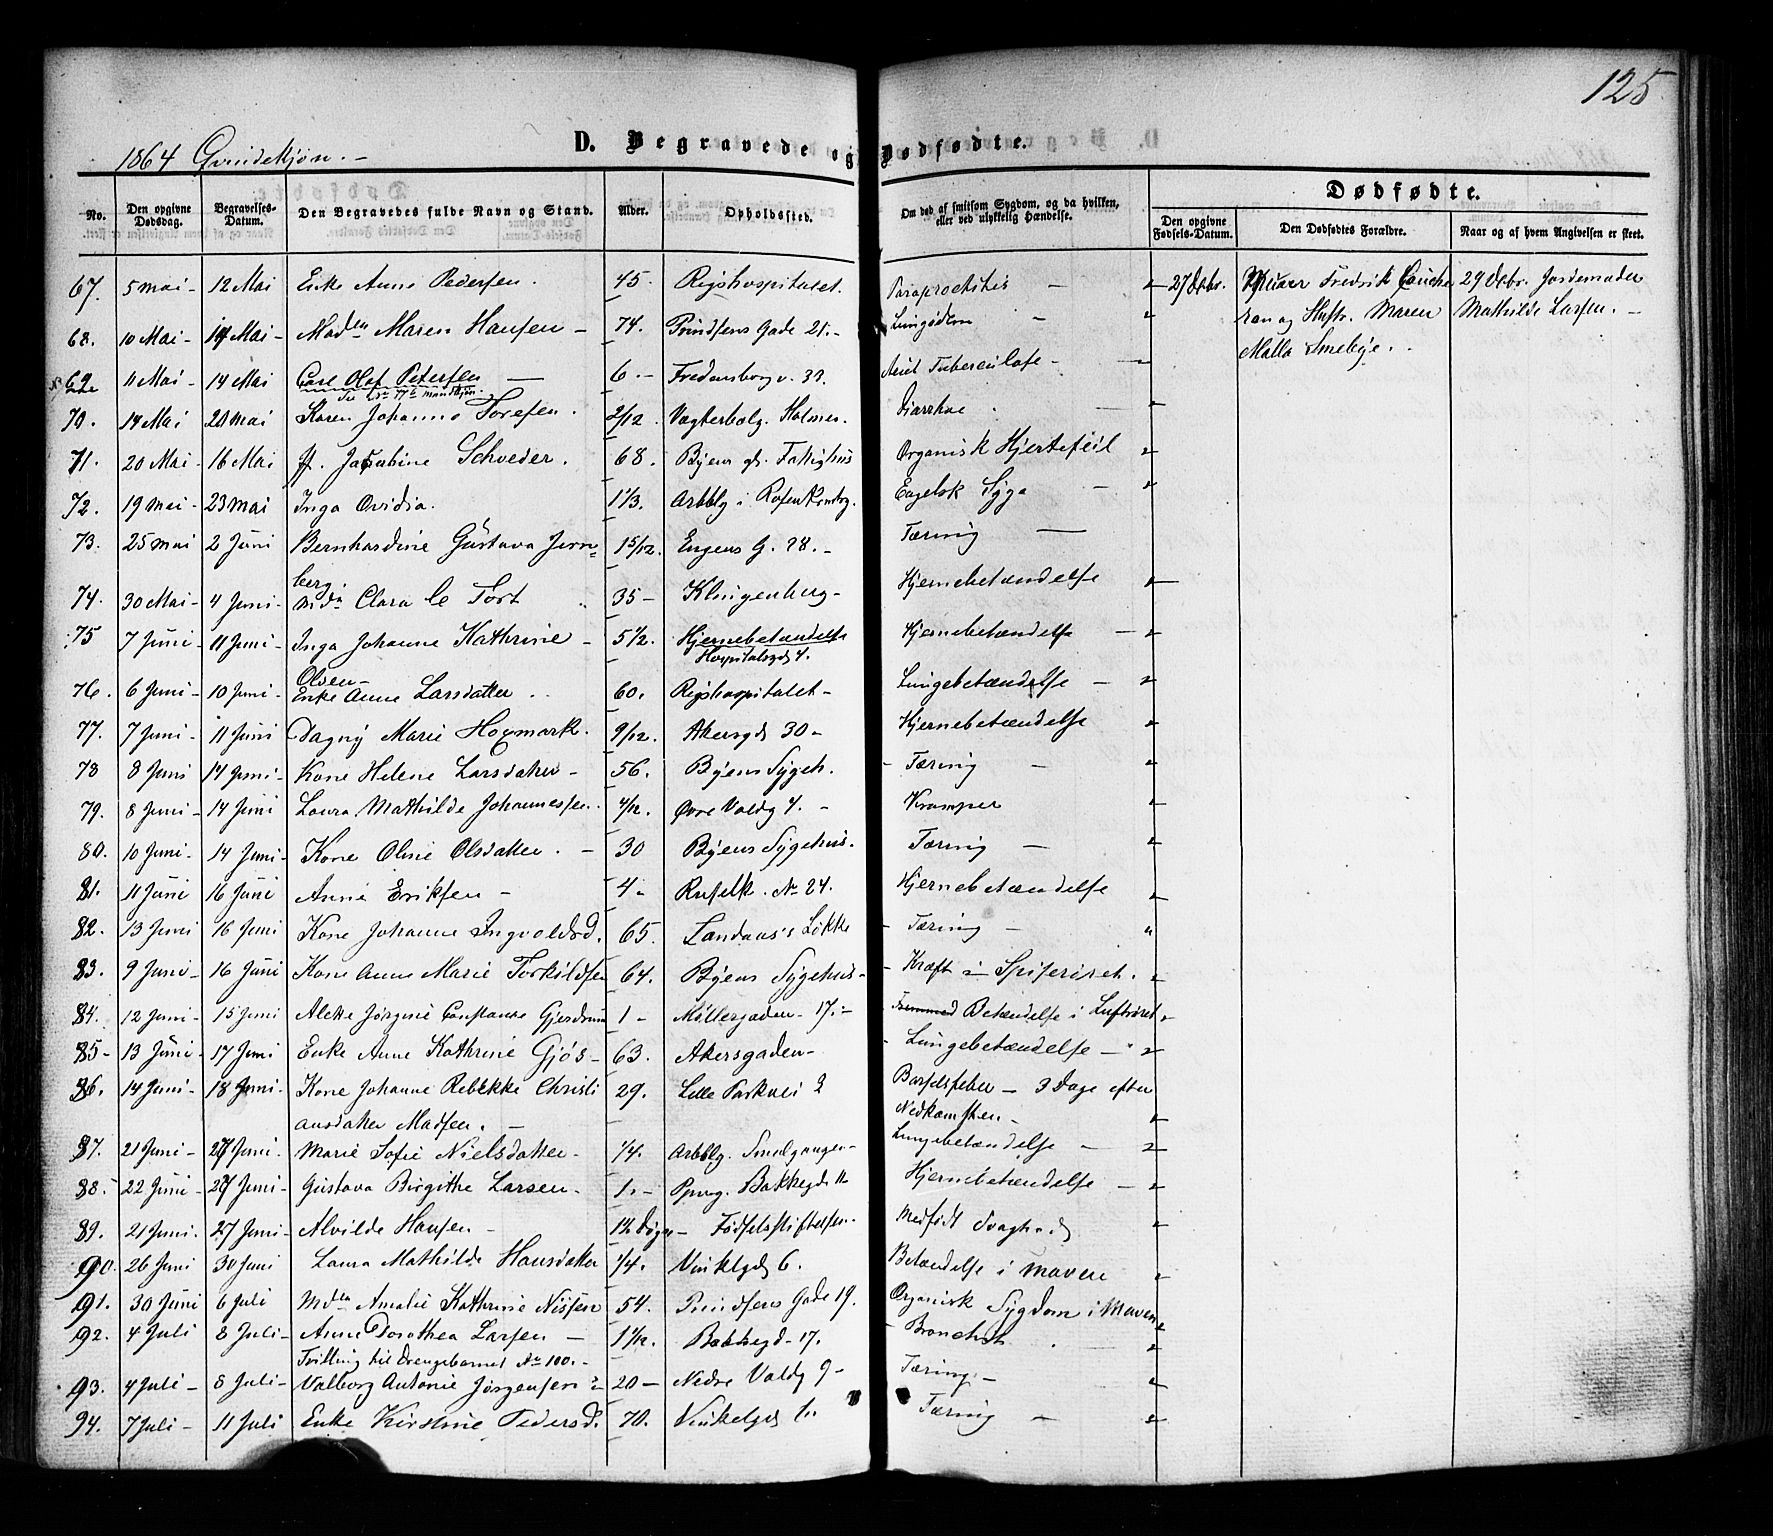 125
1864 Qvindekjøn. -
D. Begravede og Dødfødte.
Dødfødte.
No. Den opgivne Dødsdag. Begravelses-Datum. Den Begravedes fulde Navn og Stand. Alder. Opholdssted. Om død af smitsom Sygdom, og da hvilken, eller ved ulykkelig Hændelse. Den opgivne Fødsels-Datum. Den Dødfødtes Forældre. Naar og af hvem Angivelsen er skeet.
67. 5 Mai - 12 Mai Enke Anne Pedersen 45. Rigshospitalet. Paraproctitis - 27 Debr. Fredrik 29 Debr. Jordemoder
68. 10 Mai - 14 Mai - Madm Maren Hansen - 74. Prindsens Gade 21. - Lungødem - og Hustr. Maren Mathilde Larsen. -
Malla Smebye.
69 11 Mai - 14 Mai Carl Olaf Petersen 6. - Fredensborgv. 39. Acut Tuberculose -
70. 14 Mai 20 Mai Karen Johanne Toresen. 2/12. Vagterbolg. Holmen. Diarrhoe
71. 20 Mai - 16 Mai Jf. Jacobine Schveder. 68. Byens gl. Fattighus Organisk Hjertefeil
72. 19 Mai - 23 Mai Inga Ovidia. 1 1/3. Arbblg i Engelsk Syge -
73. 25 Mai 2 Juni Bernhardine Gustava Jern= 1 5/12. Engens G. 28. - Tæring -
berg.
74. 30 Mai - 4 Juni - Mdm Clara le Fort 35 - Klingenberg - Hjernebetændelse
75 7 Juni - 11 Juni - Inga Johanne Kathrine - 5 1/2. Hjernebetændelse Hjernebetændelse -
Olsen - Hospitalsgd 4.
76. 6 Juni - 10 Juni - Enke Anne Larsdatter 60. Rigshospitalet - Lungebetændelse -
77. 7 Juni - 11 Juni Dagny Marie Hoxmark. 9/12. Akersgd 30 - Hjernebetændelse
78 8 Juni 14 Juni - Kone Helene Larsdatter - 56. Byens Sygeh. - Tæring -
79. 8 Juni - 14 Juni Laura Mathilde Johannessen. 4/12. Øvre Voldg 4. - Kramper
80. 10 Juni - 14 Juni - Kone Oline Olsdatter. - 30 Byens Sygehus. Tæring -
81. 11 Juni 16 Juni Anne Eriksen - 4 - Ruselk. No 24. Hjernebetændelse
82. 13 Juni 16 Juni Kone Johanne Ingvoldsd. 65. Landaas's Løkke - Tæring -
83. 9 Juni - 16 Juni Kone Anne Marie Torkildsen 64. Byens Sygehus - - Kræft i Spiserøret.
84. 12 Juni - 15 Juni Alette Jørgine Constance Gjerdrum 1 - Møllergaden - 17. - Betændelse i Luftrøret
85 - 13 Juni - 17 Juni Enke Anne Kathrine Gjøs - 63. Akersgaden - - Lungebetændelse -
86. 14 Juni - 18 Juni - Kone Johanne Rebekke Christi 29. Lille Parkvei 2 Barselfeber - 3 Dage efter
ansdatter Madsen. - Nedkomsten -
87. 21 Juni - 27 Juni - Marie Sofie Nielsdatter - 1/4. Arbblg. Lungebetændelse -
88. 22 Juni - 27 Juni - Gustava Birgitte Larsen. 1. - Bakkegd 11 Hjernebetændelse -
89. 21 Juni. 27 Juni - Alvilde Hansen - 1 1/2 Døgn - Fødselsstiftelsen. Medfødt Svaghed
90. 26 Juni 30 Juni Laura Mathilde Hansdatter 1/4. Vinkelgd 6. Betændelse i Maven
91. 30 Juni 6 Juli Mdm Amalie Kathrine Nissen 54. Prindsens Gade 19. Organisk Sygdom i Maven
92. 4 Juli 8 Juli - Anne Dorothea Larsen - 1 1/12. Bakkegd - 17. - Bronchit
Tvilling til Drengebarnet No 100. -
93. 4 Juli - 8 Juli - Valborg Antonie Jørgensen 20 - Nedre Voldg 9 - Tæring -
94. 7 Juli - 11 Juli Enke Kirstine Pedersd. 70. Vinkelgd 1. Tæring -